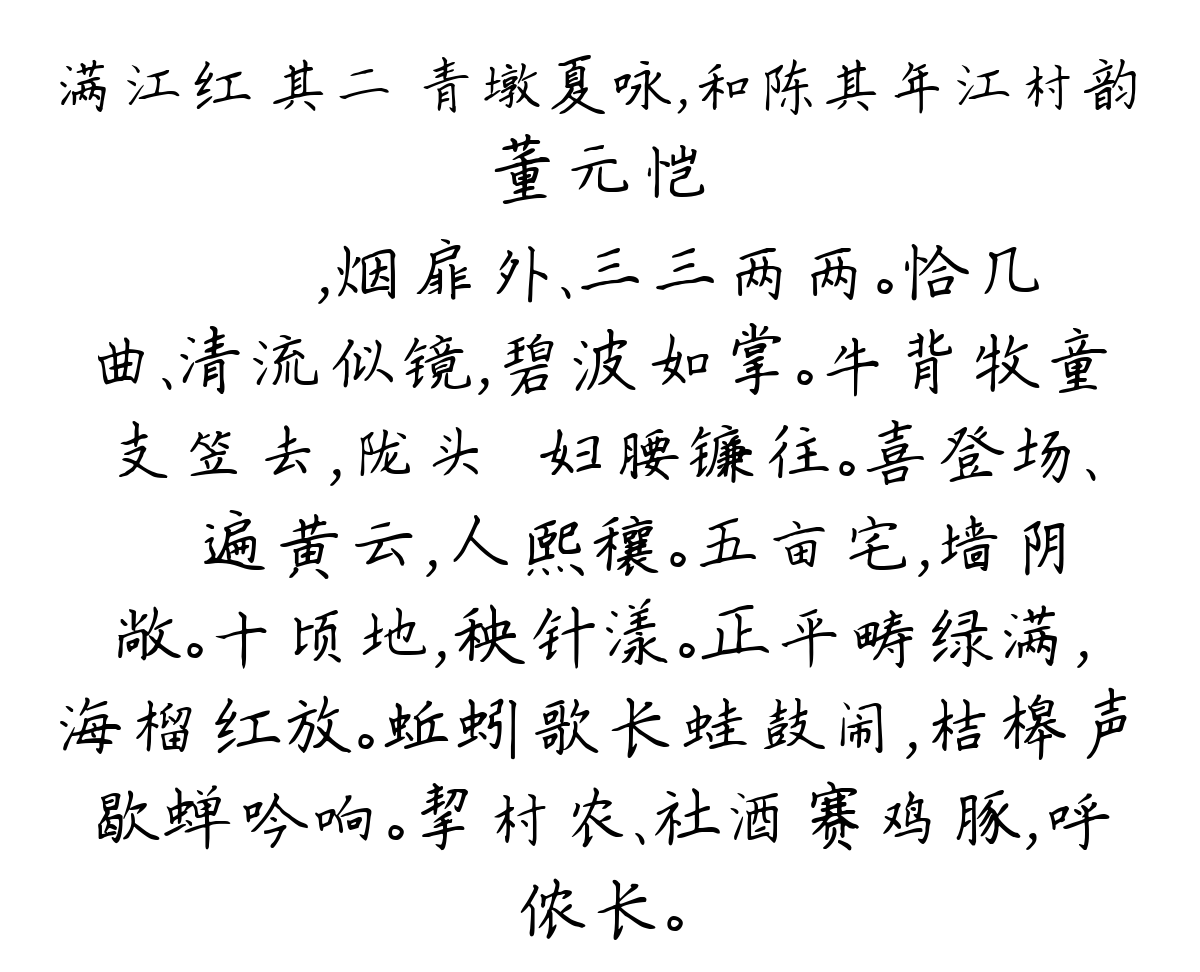 满江红 其二 青墩夏咏,和陈其年江村韵
董元恺
,烟扉外、三三两两。恰几
曲、清流似镜,碧波如掌。牛背牧童
支笠去,陇头 妇腰镰往。喜登场、
遍黄云,人熙穰。五亩宅,墙阴
敞。十顷地,秧针漾。正平畴绿满,
海榴红放。蚯蚓歌长蛙鼓闹,桔槔声
歇蝉吟响。挈村农、社酒赛鸡豚,呼
侬长。